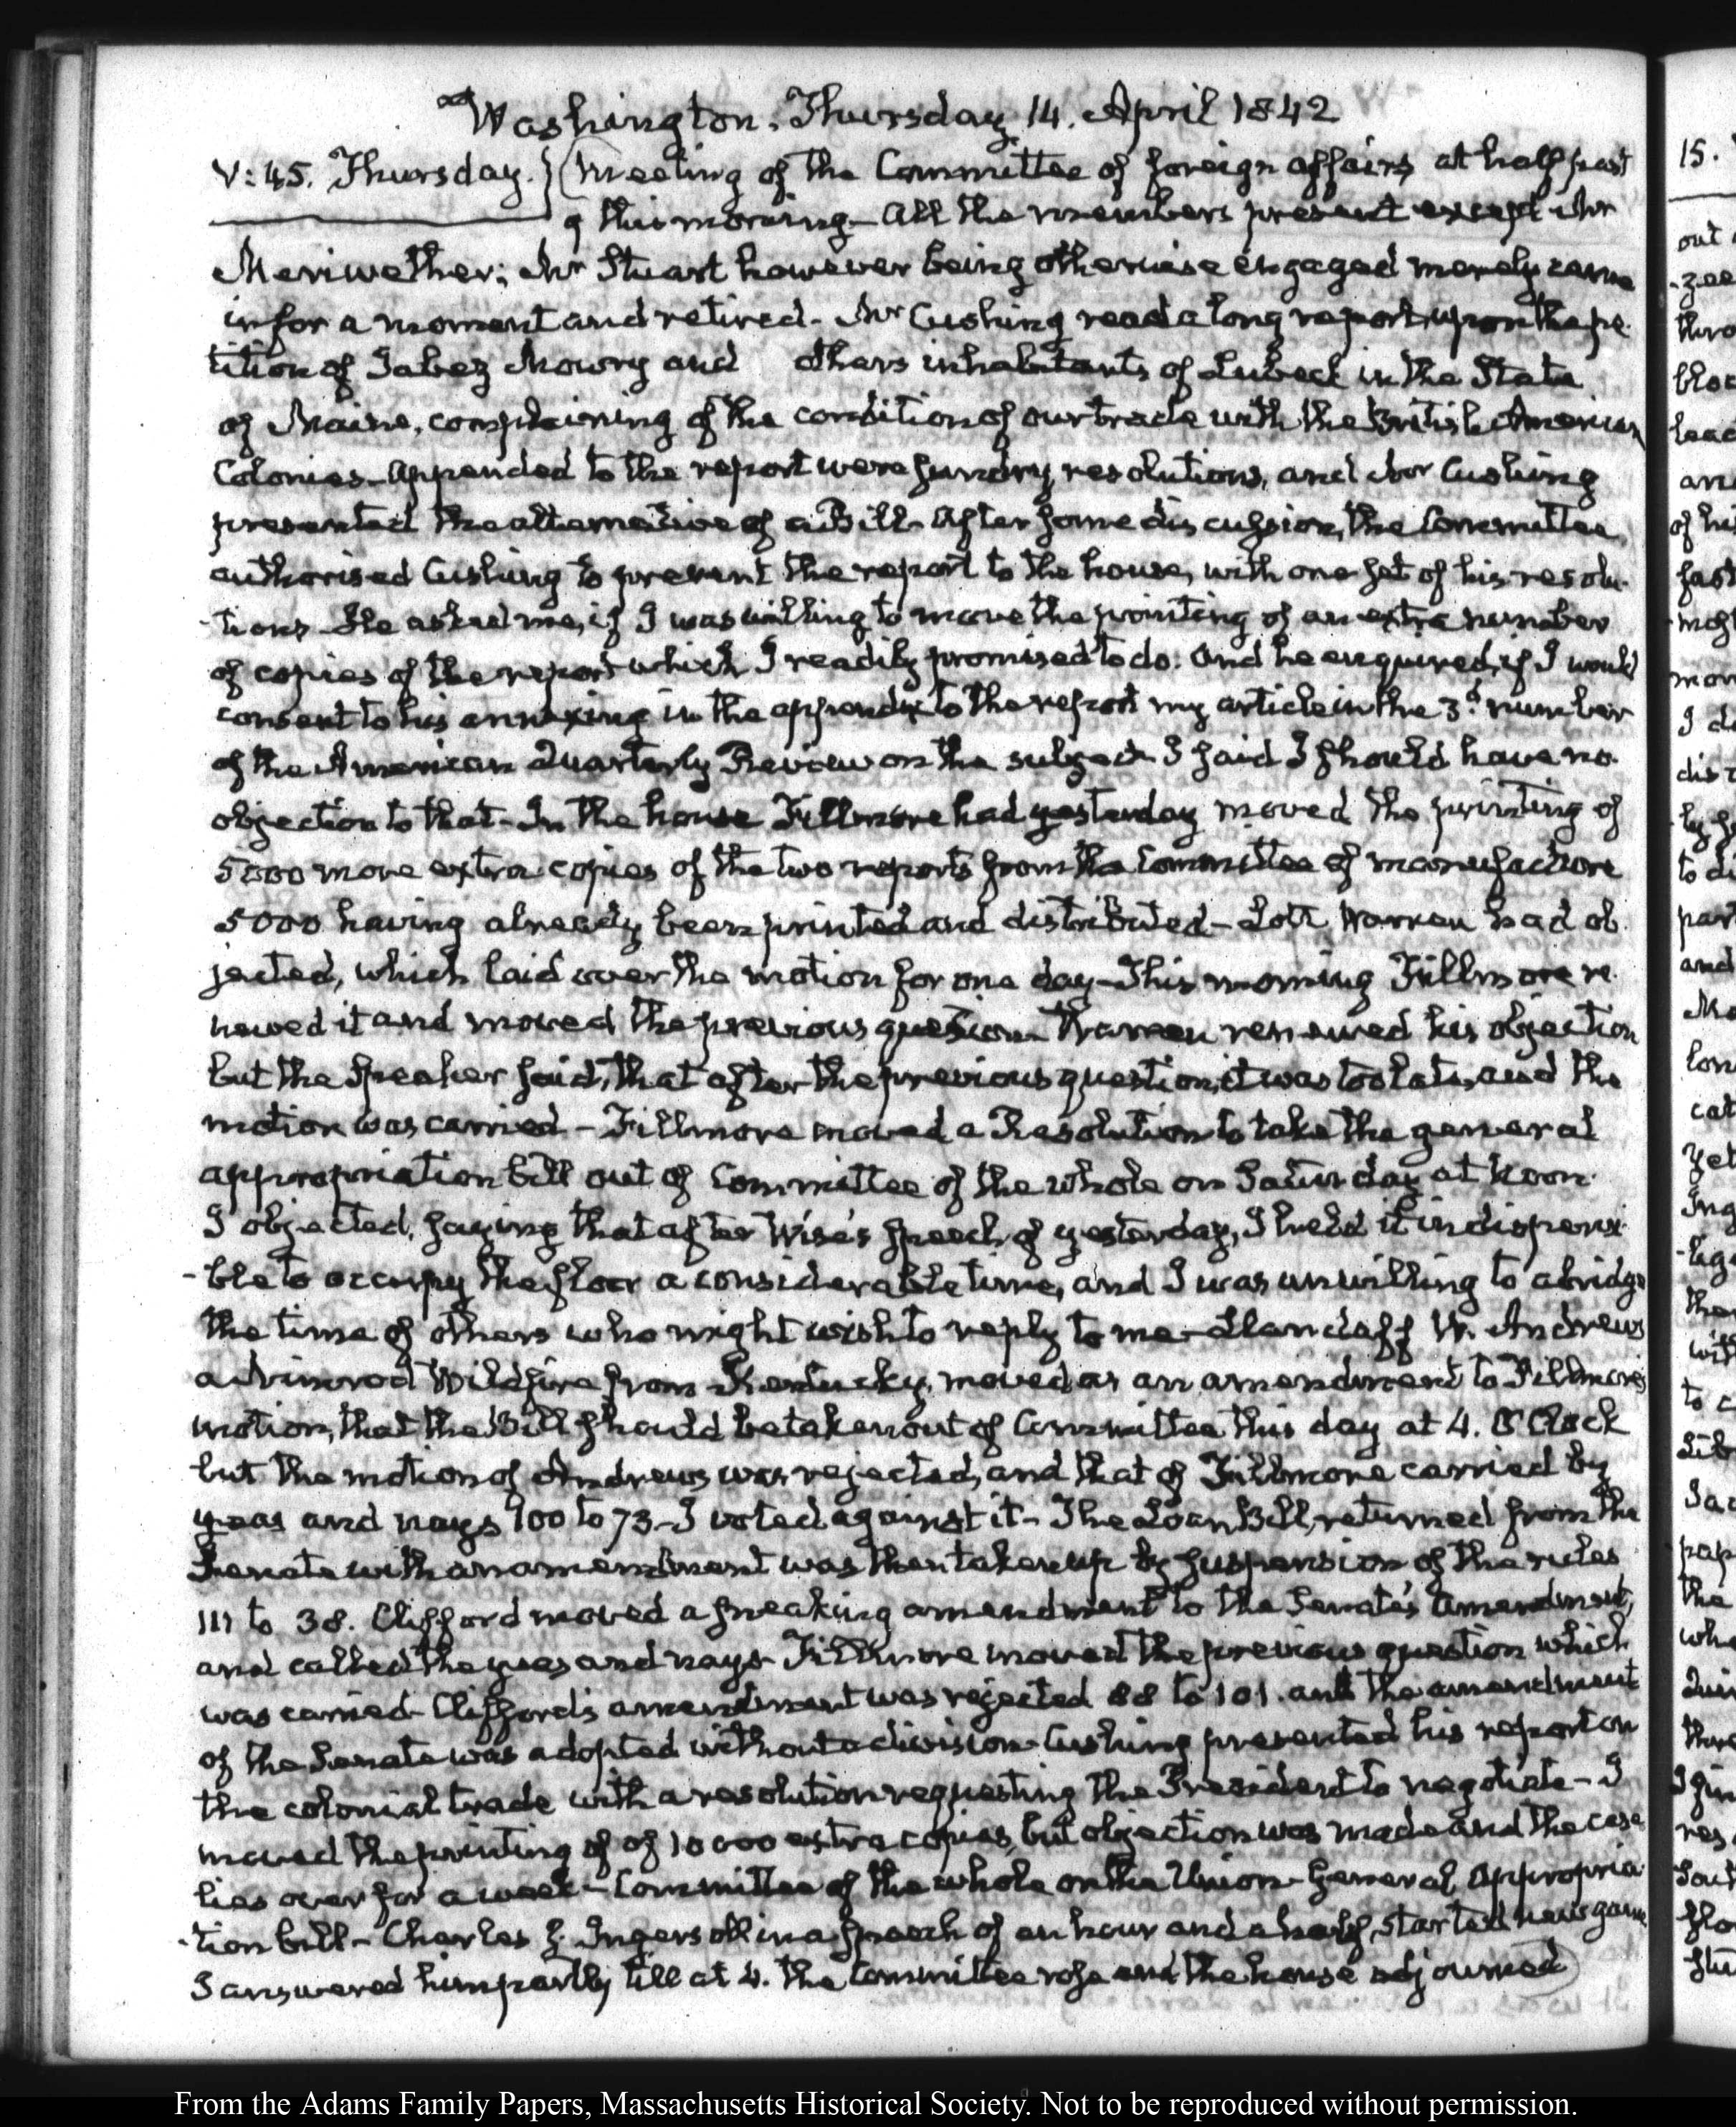 Washington, Thursday 14. April 1842
V:45. Thursday. } (Meeting of the Committee of foreign affairs at half past
9 this morning—All the members present except Mr
Meriwether; Mr Stuart however being otherwise engaged merely came
in for a moment and retired—Mr Cushing read a long report upon the pe-
tition of Jabez Mowry and others inhabitants of Lubeck in the State
of Maine, complaining of the condition of our trade with the British American
Colonies—Appended to the report were sundry resolutions, and Mr Cushing
presented the alternative of a Bill—After some discussion, the Committee
authorised Cushing to present the report to the house, with one set of his resolu-
-tions—He asked me, if I was willing to move the printing of an extra number
of copies of the report which I readily promised to do. And he enquired, if I would
consent to his annexing in the appendix to the report my article in the 3d. number
of the American Quarterly Review on the subject—I said I should have no
objection to that—In the house Fillmore had yesterday moved the printing of
5000 more extra copies of the two reports from the Committee of manufacture
5000 having already been printed and distributed—Lott Warren had ob-
jected, which laid over the motion for one day—This morning Fillmore re-
newed it and moved the previous question—Warren renewed his objection
but the Speaker said, that after the previous question, it was too late, and the
motion was carried—Fillmore moved a Resolution to take the general
appropriation bill out of Committee of the whole on Saturday at Noon.
I objected, saying that after Wise's speech of yesterday, I held it indispensi-
-ble to occupy the floor a considerable time, and I was unwilling to abridge
the time of others who might wish to reply to me—Llandaff W. Andrews
a Nimrod Wildfire from Kentucky, moved as an amendment to Fillmore's
motion, that the Bill should be taken out of Committee this day at 4. O'Clock
but the motion of Andrews was rejected, and that of Fillmore carried by
yeas and nays 100 to 73—I voted against it—The Loan Bill, returned from the
Senate with an amendment was then taken up by suspension of the rules
111 to 38. Clifford moved a sneaking amendment to the Senate's amendment,
and called the yeas and nays—Fillmore moved the previous question which
was carried—Clifford's amendment was rejected 88 to 101. and the amendment
of the Senate was adopted without a division—Cushing presented his report on
the colonial trade with a resolution requesting the President to negotiate—I
moved the printing of of 10000 extra copies, but objection was made and the case
lies over for a week—Committee of the whole on the Union—General Appropria-
-tion bill—Charles J. Ingersoll in a speech of an hour and a half, started new game
I answered him partly till at 4. the Committee rose and the house adjourned)
From the Adams Family Papers, Massachusetts Historical Society. Not to be reproduced without permission.